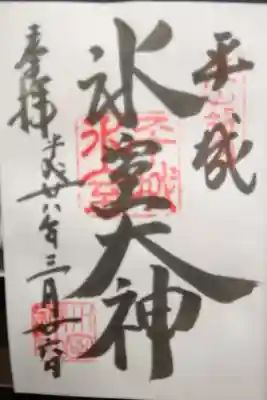 平城
氷室大神
奉拝
平成廿八年三月廿六日